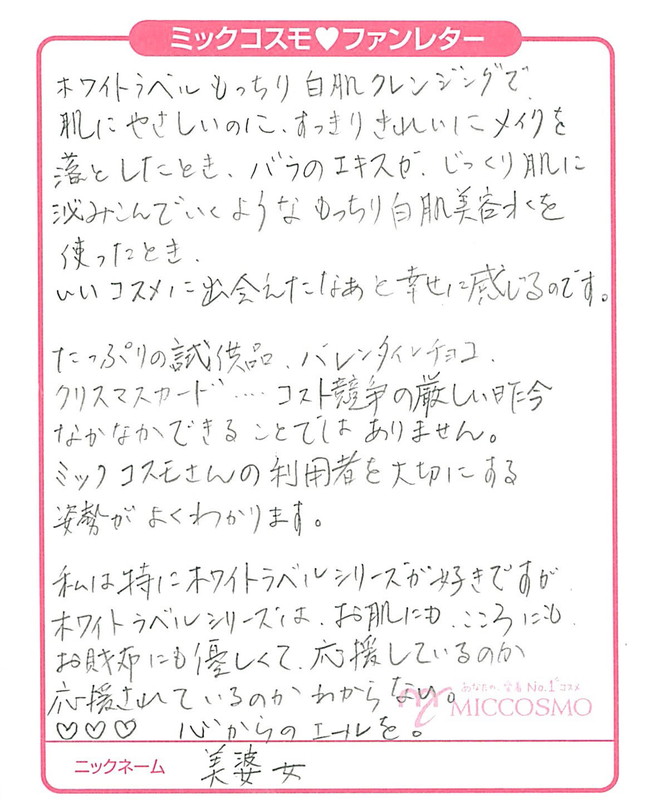 ミックコスモ♥ファンレター
ホワイトラベル もっちり白肌クレンジングで
肌にやさしいのに、すっきりきれいにメイクを
落としたとき、バラのエキスが、じっくり肌に
泌みこんでいくようなもっちり白肌美容水を
使ったとき、
いいコスメに出会えたなあと幸せに感じるのです。
たっぷりの試供品、バレンタインチョコ、
クリスマスカード…‥ コスト競争の厳しい昨今
なかなかできることではありません。
ミックコスモさんの利用者を大切にする
姿勢がよくわかります。
私は特にホワイトラベルシリーズが好きですが
ホワイトラベルシリーズは、お肌にも、こころにも、
お財布にも優しくて、応援しているのか
応援されているのかわからない。
♡♡♡ 心からのエールを。
あなたの、定番No.1コスメ
MICCOSMO
ニックネーム 美婆女